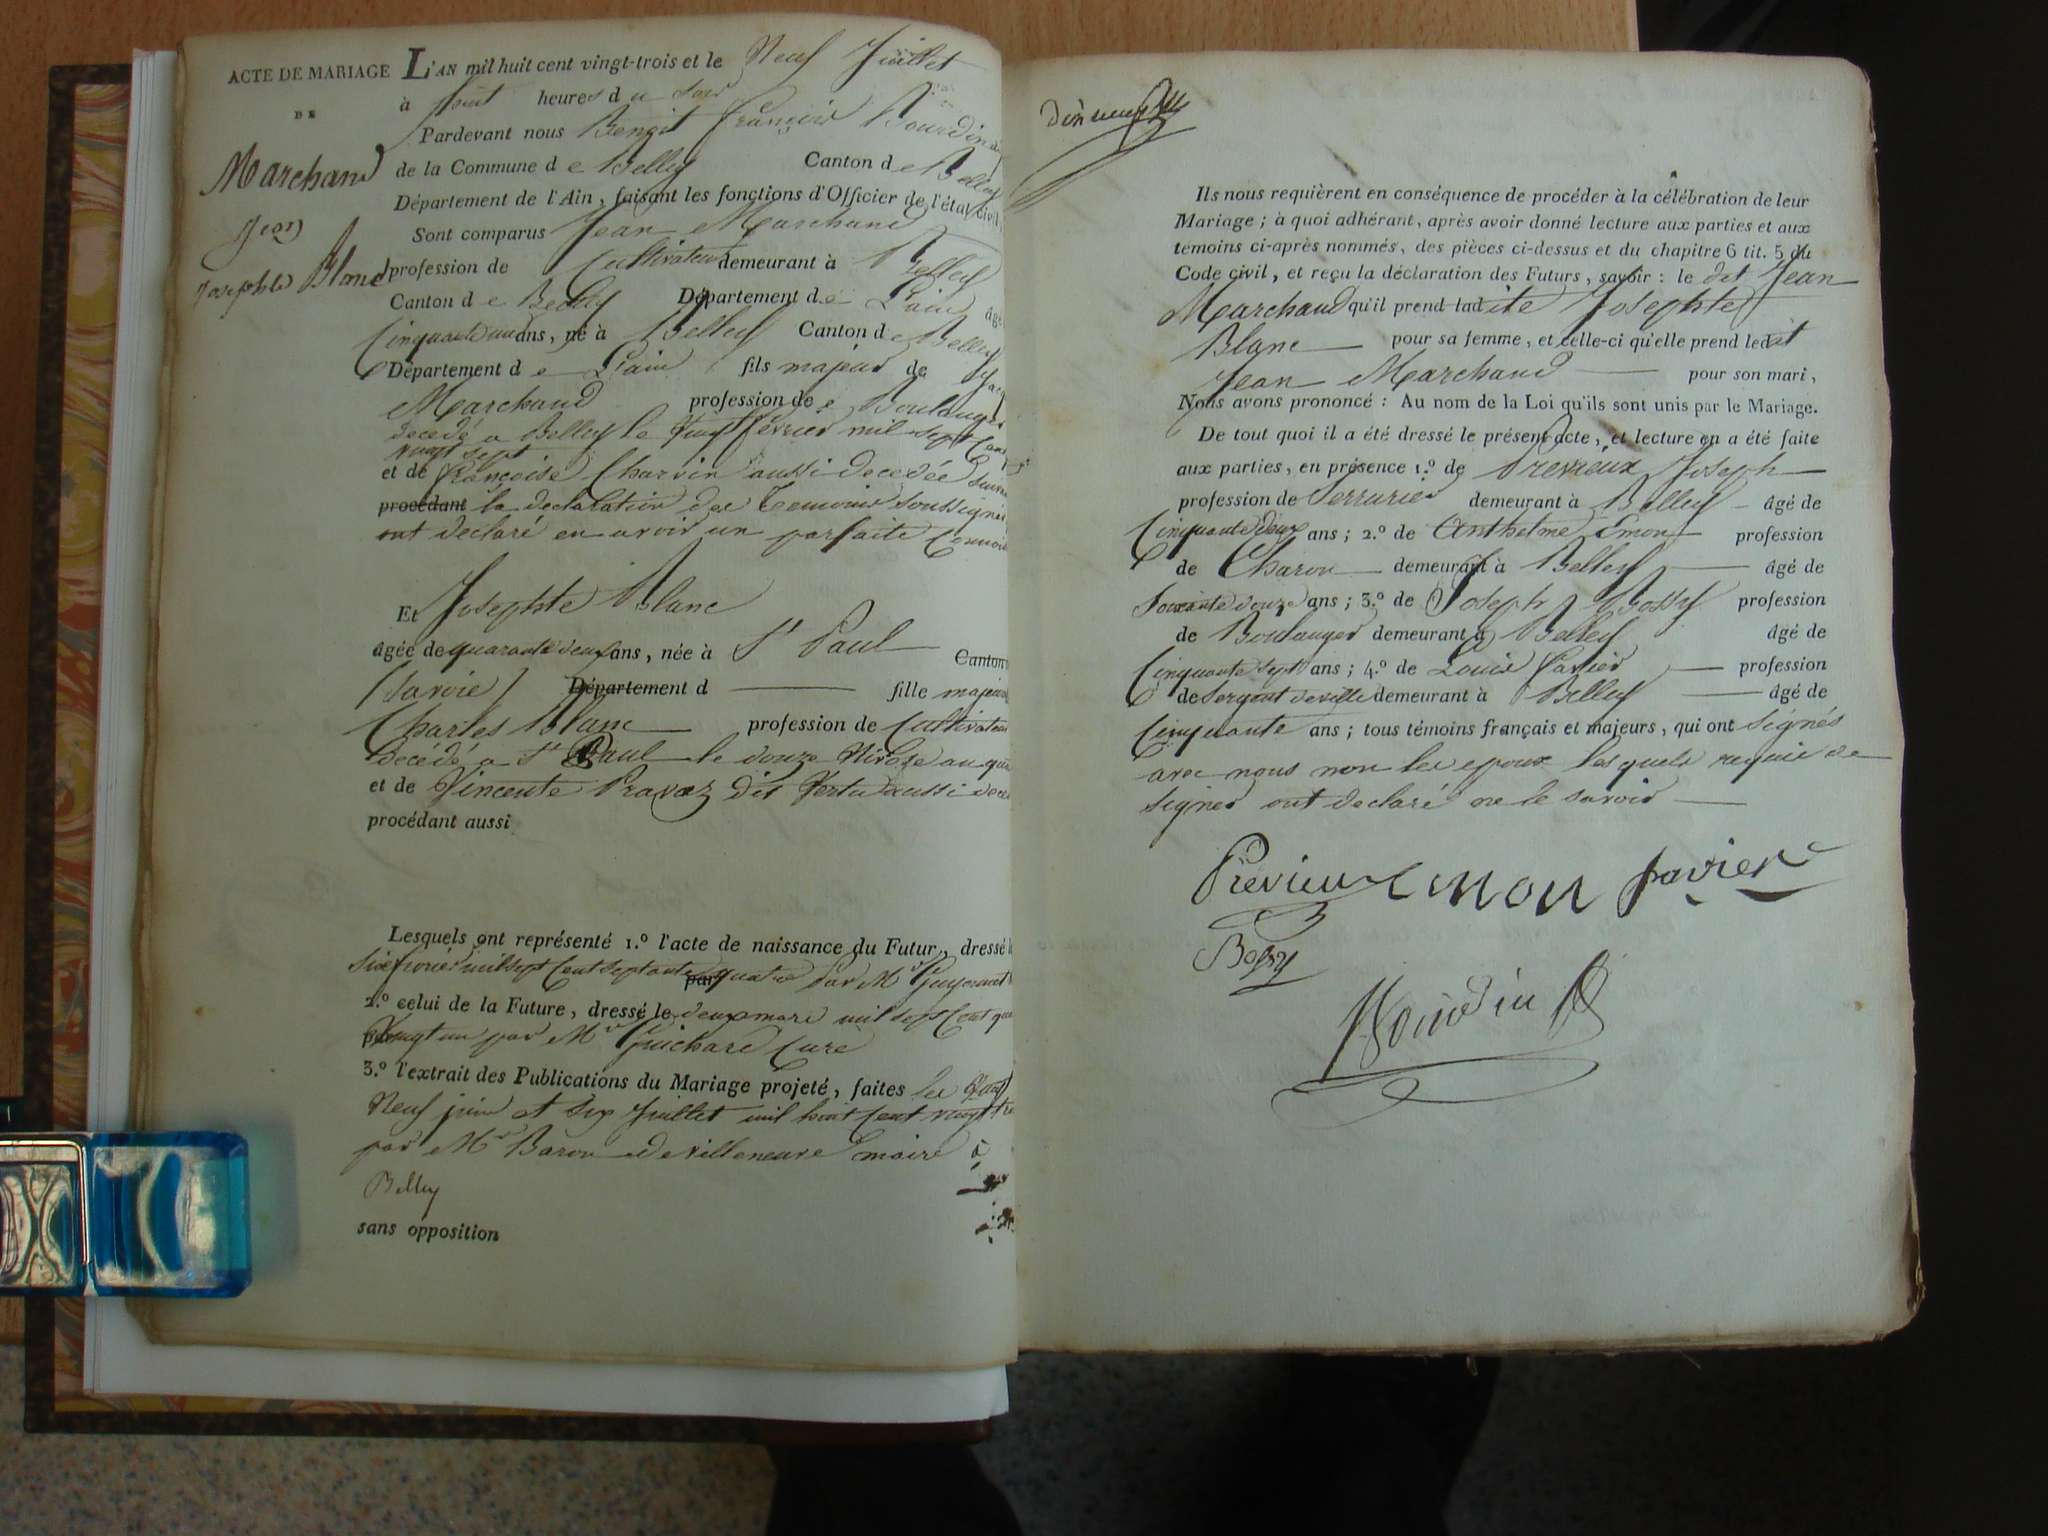 ACTE DE MARIAGE
DE
Marchand
Jean
Josephte Blanc
L'AN mil huit cent vingt-trois et le Neuf Juillet
à huit heures du soir
Pardevant nous Benoit François Bourdin
de la Commune de Belley Canton de Belley
Département de l'Ain, faisant les fonctions d'Officier de l'état civil,
Sont comparus Jean Marchand
profession de Cultivateur demeurant à Belley
Canton de Belley Département de L'ain âgé
Cinquante ans, né à Belley Canton de Belley
Département de L'ain fils majeur de
Marchand profession de Boulanger
decedé a Belley le vingt fevrier mil sept Cent
vingt sept
et de françoise Charvin aussi decedée suivant
procédant la declaration des temoins soussignés
ont declaré en avoir un parfaite
Et Josephte Blanc
âgée de quarante deux ans, née à St Paul Canton
(Savoie) Département d fille majeure
Charles Blanc profession de Cultivateur
décédé a St Paul le douze Nivose an
et de Vincente Pravaz dit Vertu aussi
procédant aussi
Lesquels ont représenté 1.º l'acte de naissance du Futur, dressé le
Six fevrier mil sept Cent septante par quatre par Mr
2.º celui de la Future, dressé le deux mars mil sept Cent
vingt un par Mre Guichard Curé
3.º l'extrait des Publications du Mariage projeté, faites les
Neuf juin et Six Juillet mil huit Cent vingt
par Mr Baron de villeneuve maire à
Belley
sans opposition
Dix neuf
Ils nous requièrent en conséquence de procéder à la célébration de leur
Mariage; à quoi adhérant, après avoir donné lecture aux parties et aux
temoins ci-après nommés, des pièces ci-dessus et du chapitre 6 tit. 5 du
Code civil, et reçu la déclaration des Futurs, savoir: le dit Jean
Marchand qu'il prend ladite Josephte
Blanc pour sa femme, et celle-ci qu'elle prend ledit
Jean Marchand pour son mari,
Nous avons prononcé: Au nom de la Loi qu'ils sont unis par le Mariage.
De tout quoi il a été dressé le présent acte, et lecture en a été faite
aux parties, en présence 1.º de Previeux Joseph
profession de Serrurier demeurant à Belley âgé de
Cinquante deux ans; 2.º de Anthelme Emon profession
de Charon demeurant à Belley âgé de
Soixante douze ans; 3.º de Joseph Bossy profession
de Boulanger demeurant à Belley âgé de
Cinquante sept ans; 4.º de Louis favier profession
de Sergent de ville demeurant à Belley âgé de
Cinquante ans; tous témoins français et majeurs, qui ont signés
avec nous non les epoux lesquels requis de
signer ont declaré ne le savoir
Prévieux Emon favier
Bossy
Bourdin